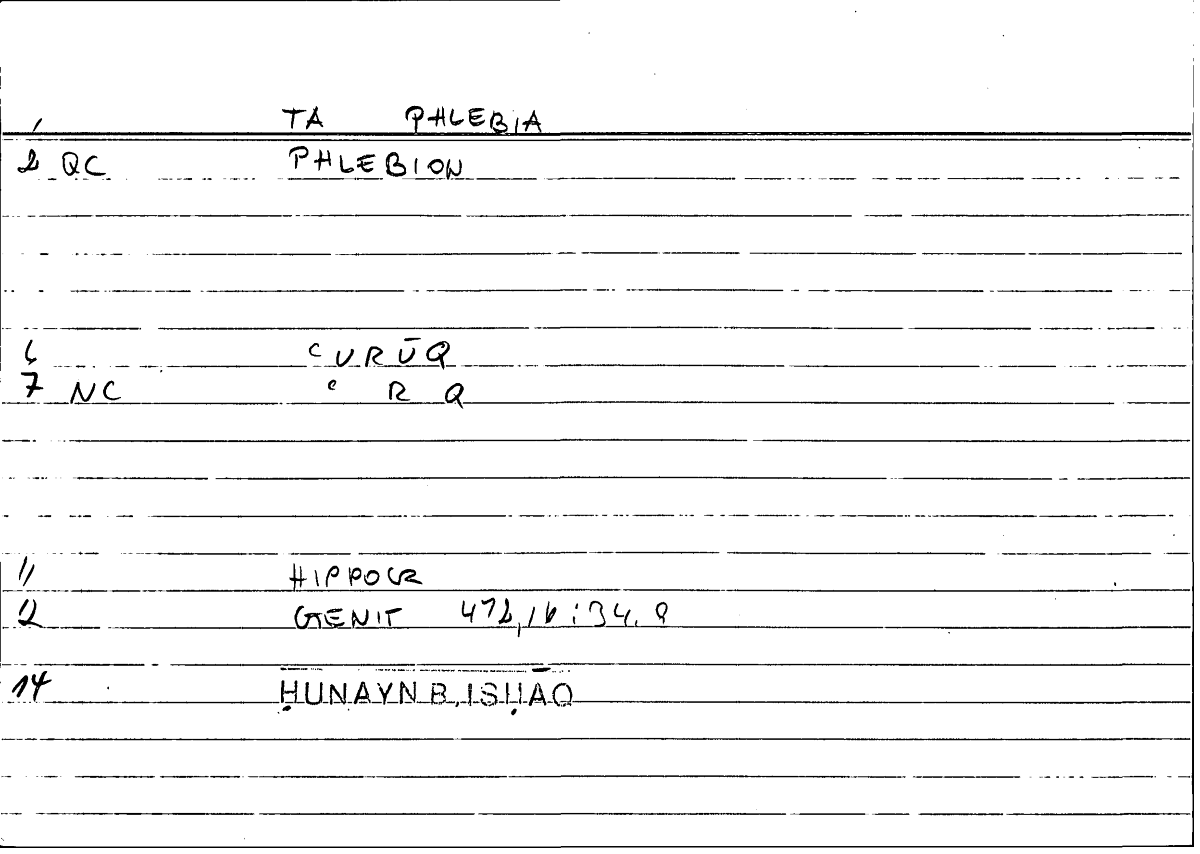 1 TA PHLEBIA
2 QC PHLEBION
6 ʿURŪQ
7 NC ʿ R Q
11 HIPPOCR
12 GENIT 472,16:34.8
14 ḤUNAYN B. ISḤĀQ